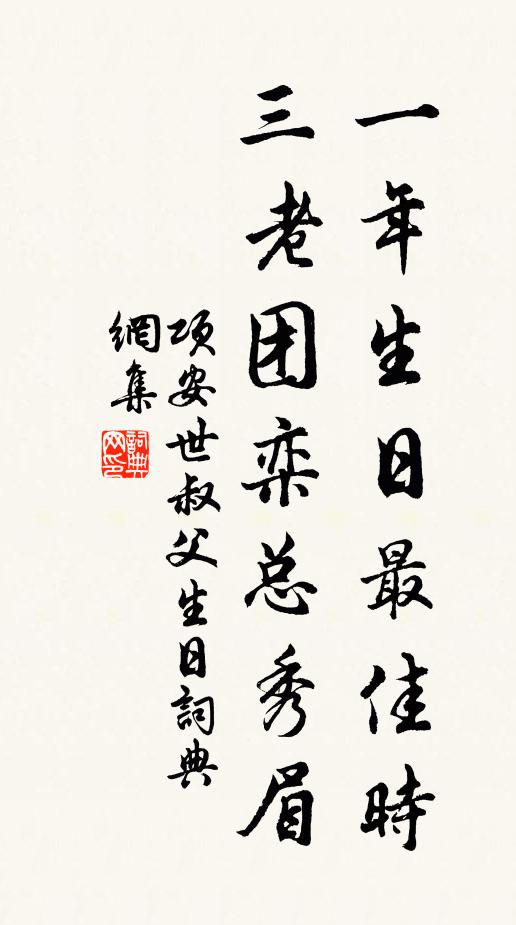 一年生日最佳時
三老团栾总秀眉
項安世叔父生日詞典
網集
詞典
网印